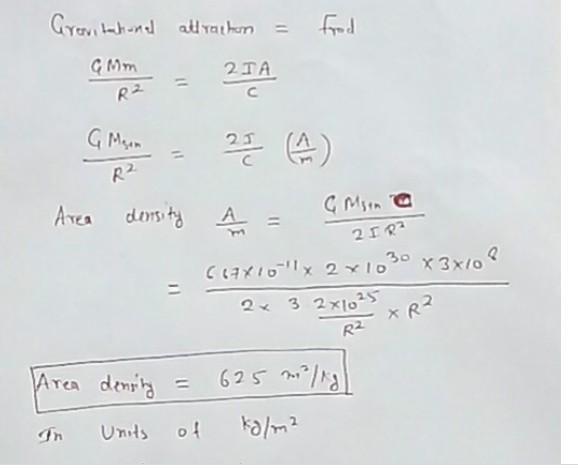 Gravitational attraction = Frad
GMm / R² = 2IA / C
GMsun / R² = 2I / C (A/m)
Area density A/m = GMsun C / 2IR²
= 667×10⁻¹¹ × 2×10³⁰ × 3×10⁸ / 2 × 3 2×10²⁵ / R² × R²
Area density = 625 m²/kg
In Units of kg/m²